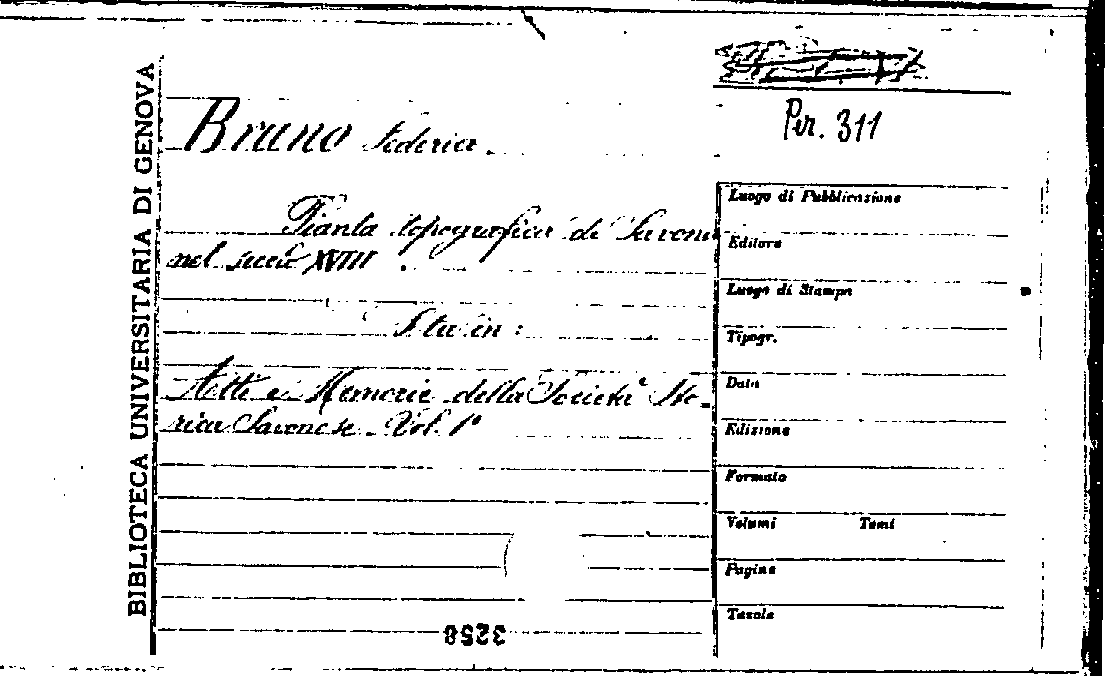 BIBLIOTECA UNIVERSITARIA DI GENOVA
Per. 311
Bruno Federico
Pianta topografica di Savona
nel secolo XVIII
Sta in:
Atti e Memorie della Società Sto-
rica Savonese. Vol. 1°
Luogo di Pubblicazione
Editore
Luogo di Stampa
Tipogr.
Data
Edizione
Formato
Volumi Tomi
Pagine
Tavole
3258